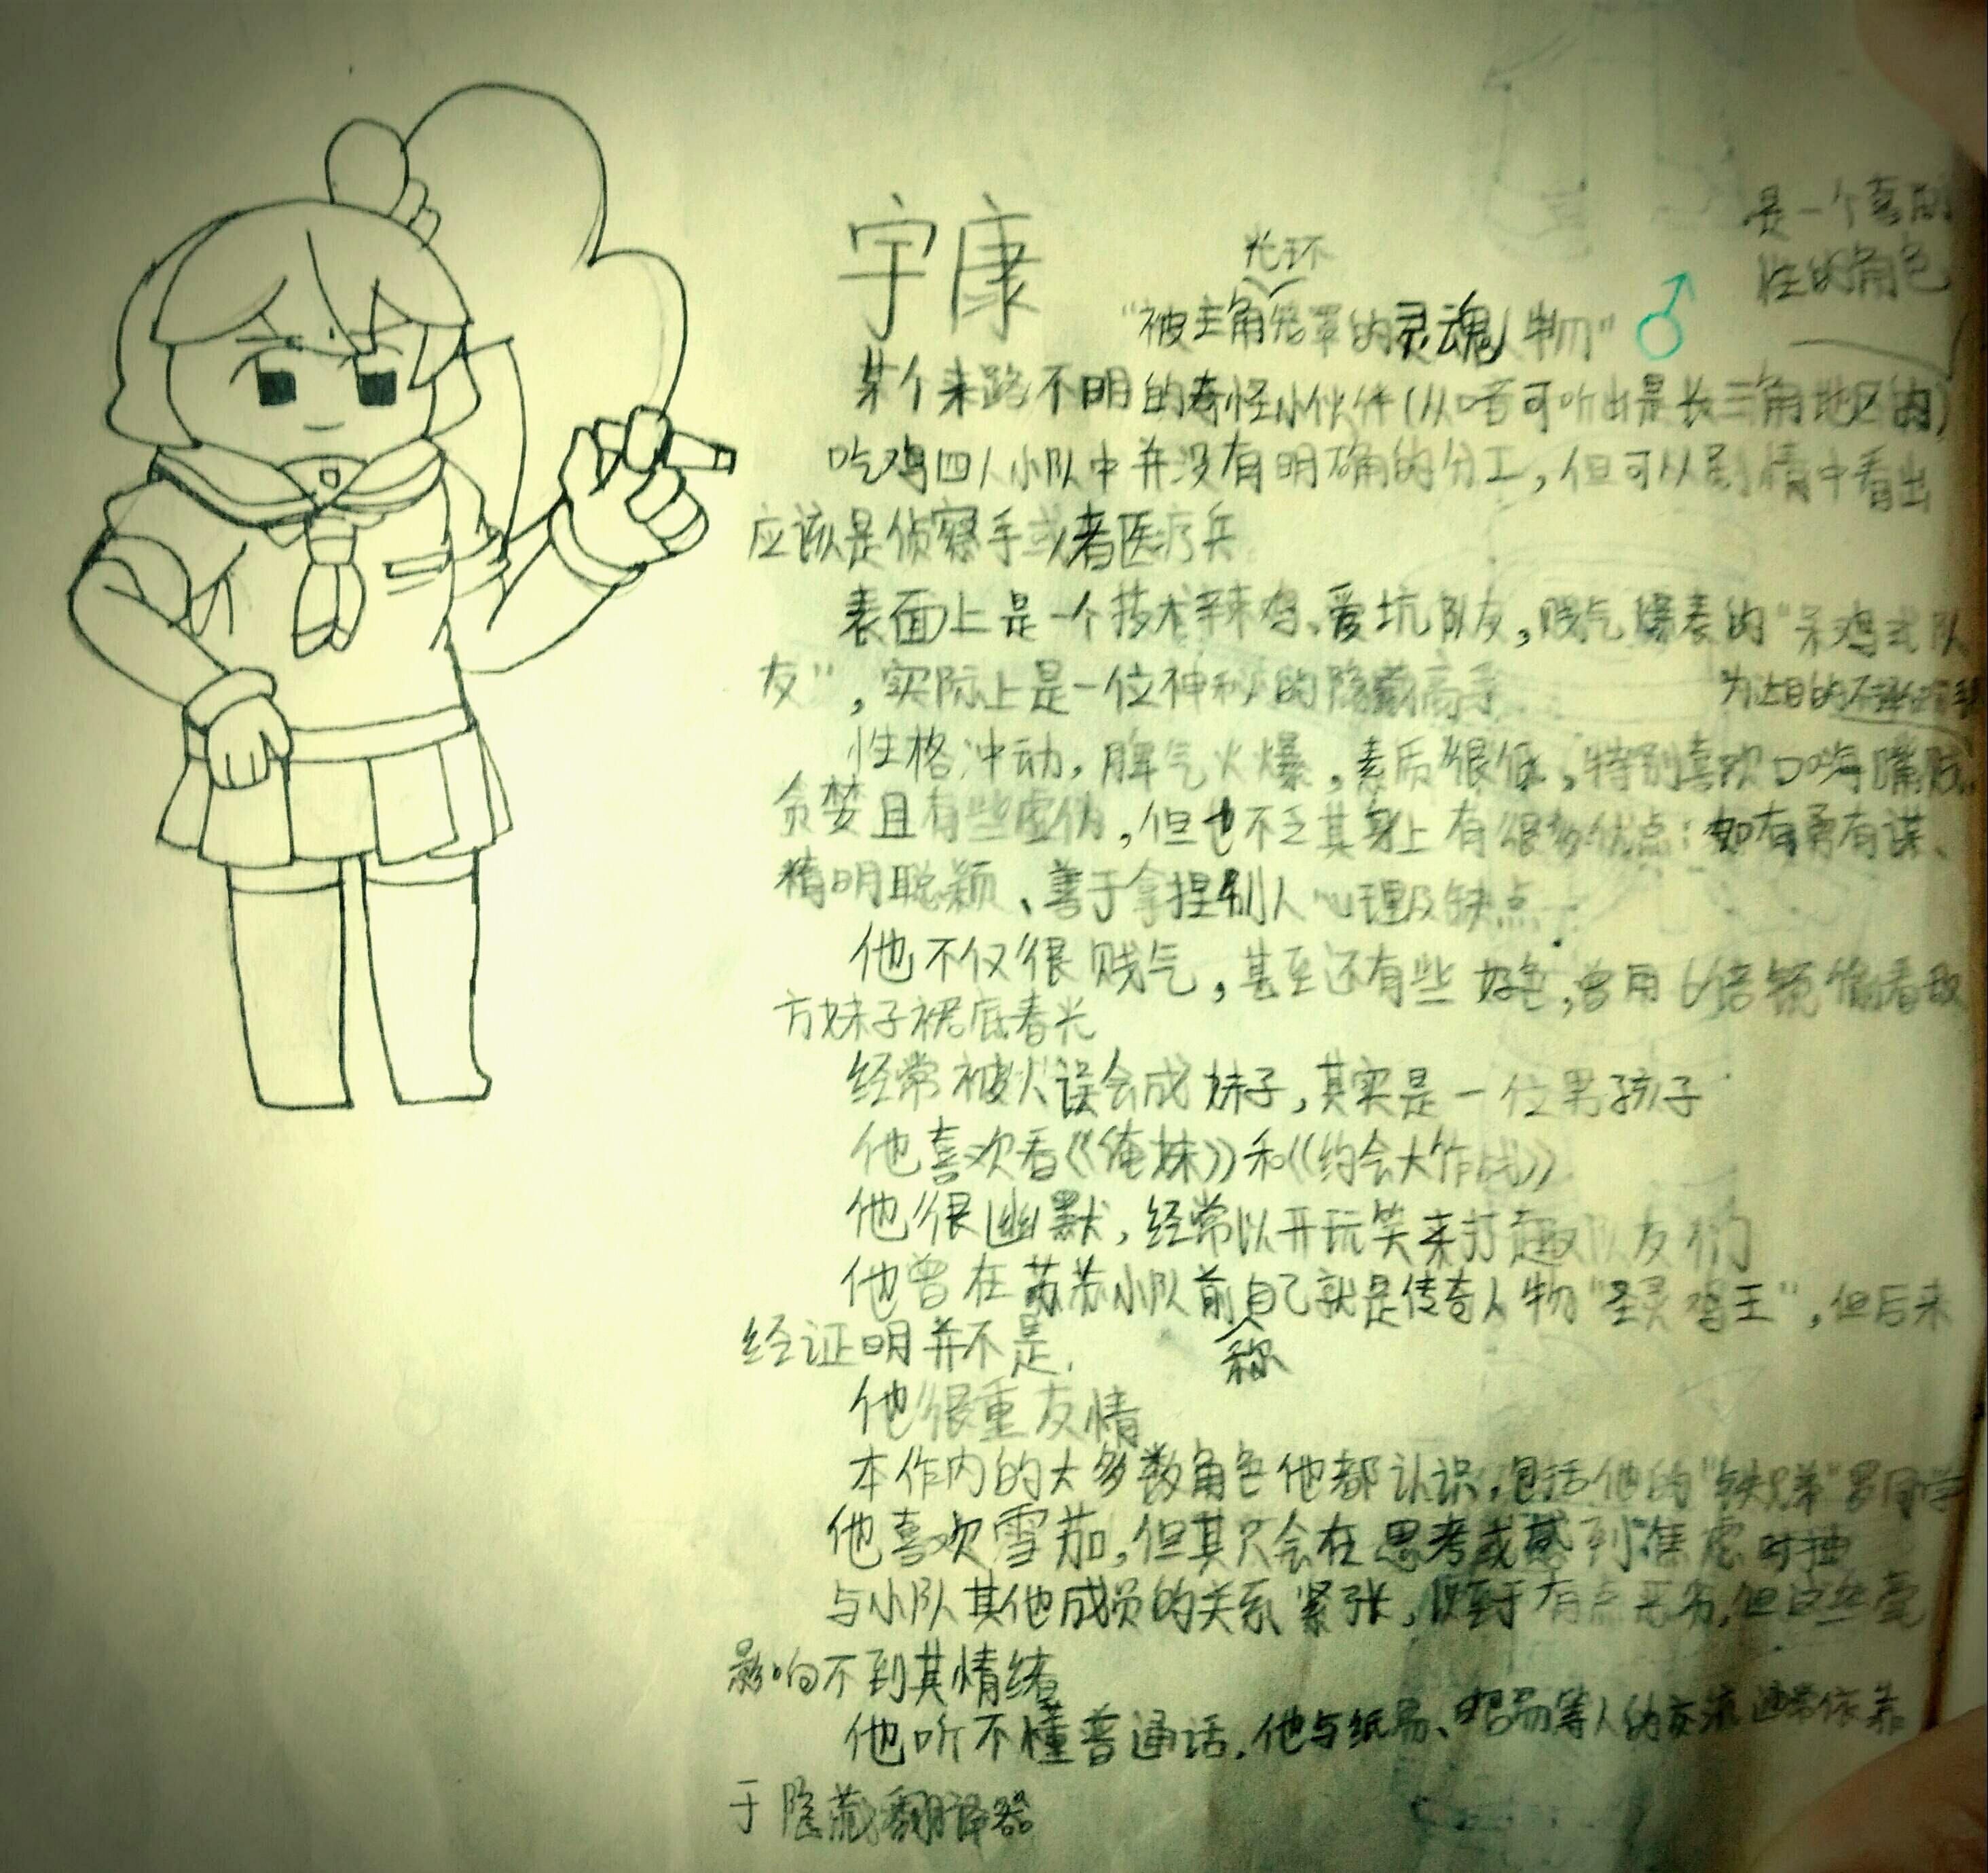 宇康
是一个喜剧
性的角色
光环
"被主角笼罩的灵魂人物" ♂
某个来路不明的奇怪小伙伴(从口音可听出是长三角地区的)
吃鸡四人小队中并没有明确的分工,但可以剧情中看出
应该是侦察手或者医疗兵
表面上是一个技术辣鸡、爱坑队友,贱气爆表的"呆鸡式队
友",实际上是一位神秘的隐藏高手
为达目的不择手
性格冲动,脾气火爆,素质很低,特别喜欢口嗨嘴贱
贪婪且有些虚伪,但也不乏其身上有很多优点:如有勇有谋、
精明聪颖、善于拿捏别人心理及缺点
他不仅很贱气,甚至还有些好色,曾用6倍镜偷看敌
方妹子裙底春光
经常被人误会成妹子,其实是一位男孩子
他喜欢看《俺妹》和《约会大作战》
他很幽默,经常以开玩笑来打趣队友们
他曾在苏苏小队前自己就是传奇人物"圣灵鸡王",但后来
称
经证明并不是.
他很重友情
本作内的大多数角色他都认识,包括他的"铁兄弟"罗同学
他喜欢雪茄,但其只会在思考或感到焦虑时抽
与小队其他成员的关系紧张,以至于有点恶劣,但这些完
影响不到其情绪
他听不懂普通话.他与纸易、等人的交流通常依靠
于隐藏翻译器